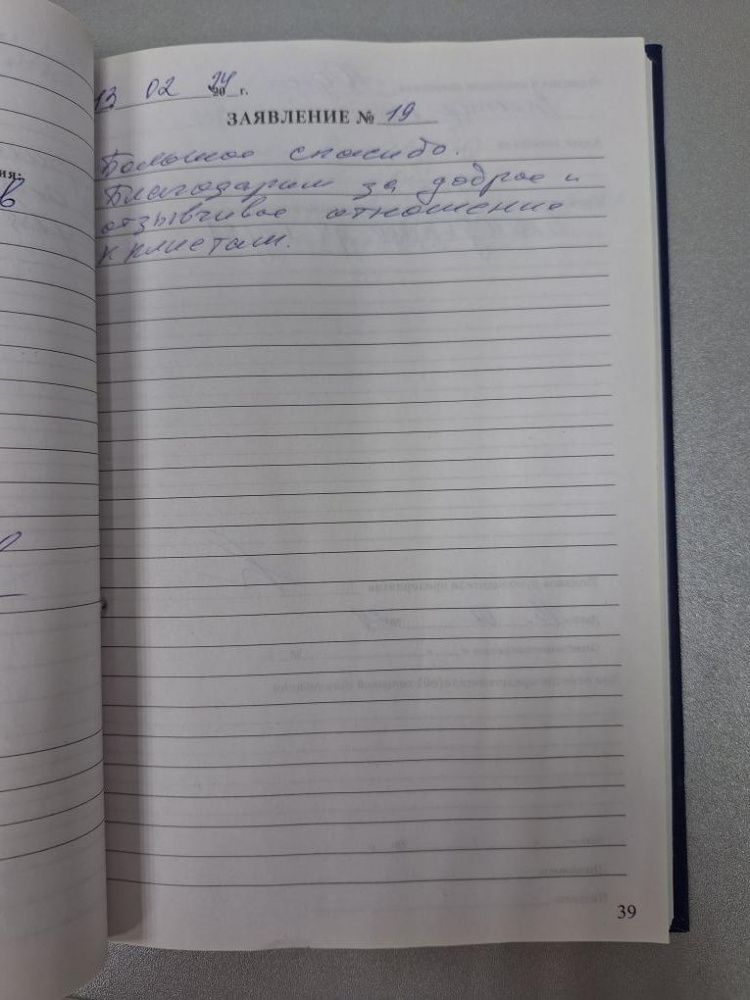 13 02 2024 г.
ЗАЯВЛЕНИЕ № 19
Большое спасибо.
Благодарим за доброе и
отзывчивое отношение
к клиетам.
ия:
39